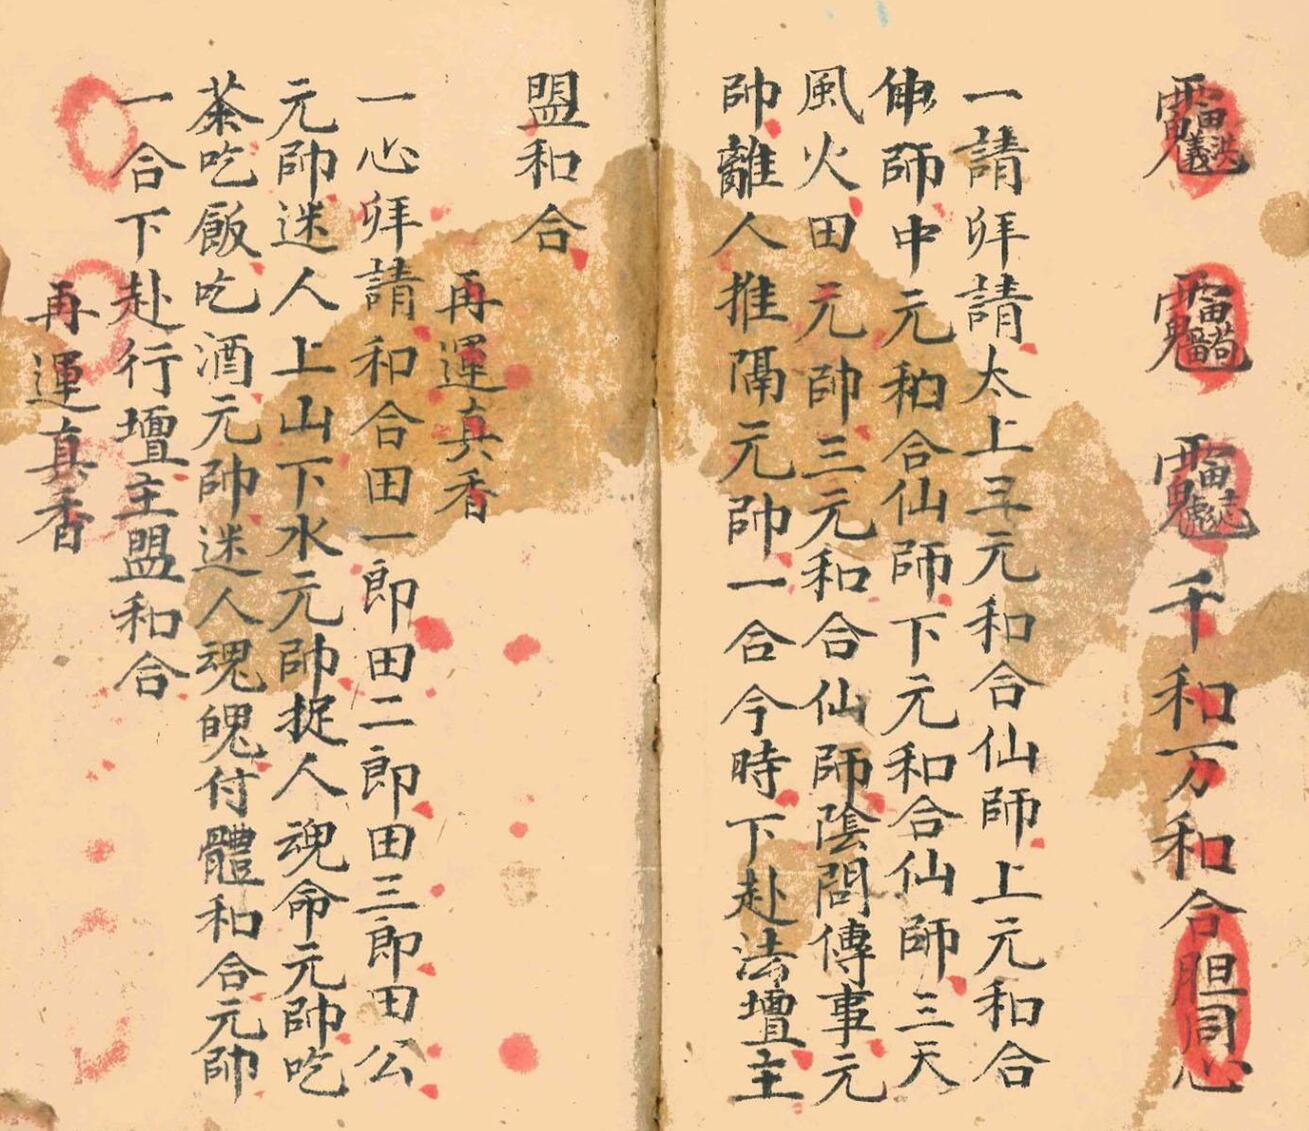 千和万和合胆同心
一請拜請太上三元和合仙師上元和合
仙師中元和合仙師下元和合仙師三天
風火田元帥三元和合仙師陰問傳事元
帥離人推隔元帥一合今時下赴法壇主
盟和合
再運真香
一心拜請和合田一郎田二郎田三郎田公
元帥迷人上山下水元帥捉人魂命元帥吃
茶吃飯吃酒元帥迷人魂魄付體和合元帥
一合下赴行壇主盟和合
再運真香